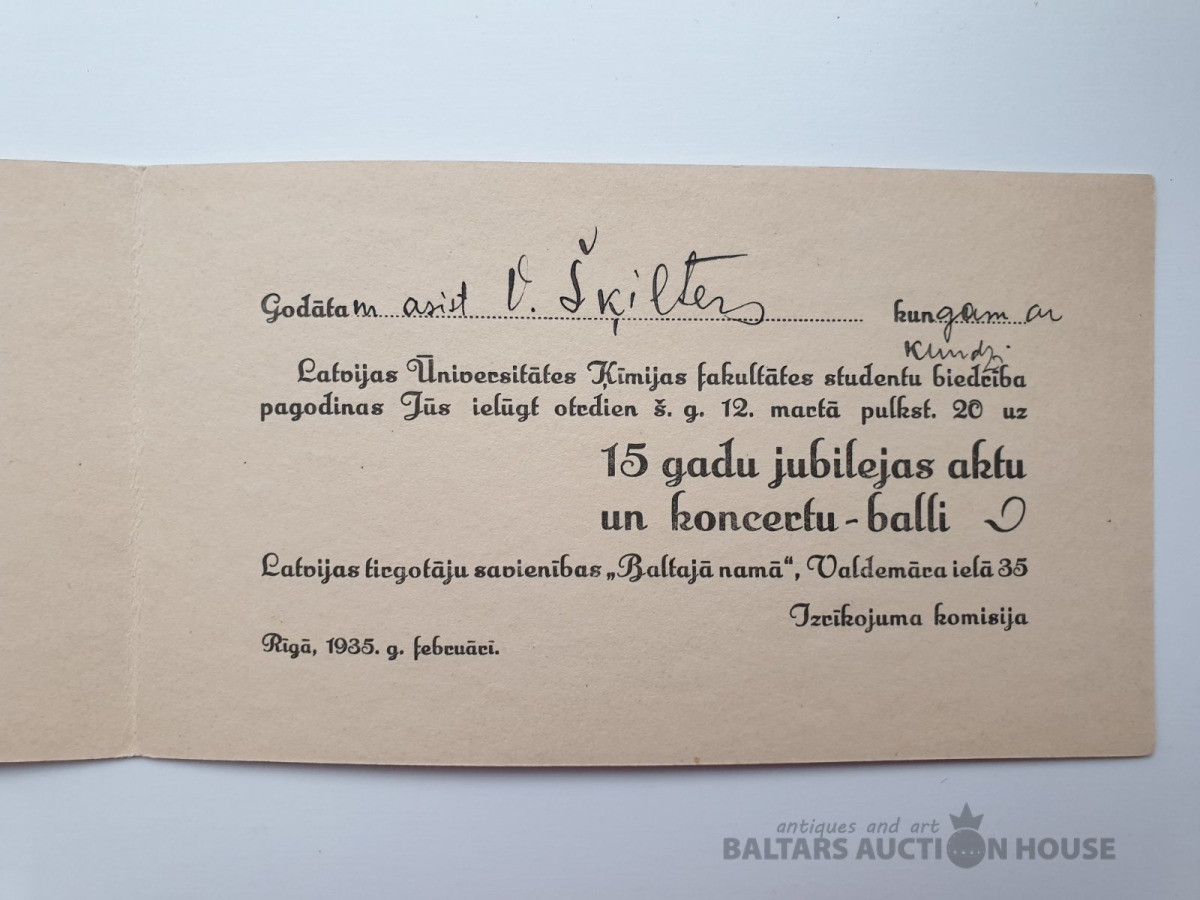 Godātam asist V. Šķilters kungam ar
kundzi
Latvijas Ūniversitātes Ķīmijas fakultātes studentu biedrība
pagodinas Jūs ielūgt otrdien š. g. 12. martā pulkst. 20 uz
15 gadu jubilejas aktu
un koncertu-balli
Latvijas tirgotāju savienības „Baltajā namā“, Valdemāra ielā 35
Izrīkojuma komisija
Rīgā, 1935. g. februārī.
antiques and art
BALTARS AUCTION HOUSE